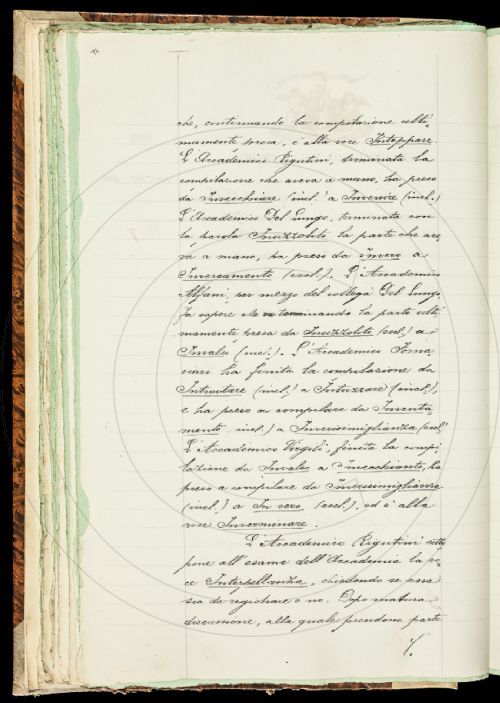 che, continuando la compilazione ulti-
mamente presa, è alla voce Intoppare.
L'Accademico Rigutini, terminata la
compilazione che aveva a mano, ha preso
da Invecchiare (incl.) a Invenire (incl.)
L'Accademico Del Lungo, terminata con
la parola Inuzzolito la parte che ave-
va a mano, ha preso da Invero a
Invescamento (escl.). L'Accademico
Alfani, per mezzo del collega Del Lungo,
fa sapere che va terminando la parte ulti-
mamente presa da Inuzzolito (escl.) a
Invalso (inc.). L'Accademico Torna-
ciari ha finita la compilazione da
Introitare (incl.) a Intuzzare (incl.),
e ha preso a compilare da Inventa-
mento incl.) a Inverisimiglianza (escl.
L'Accademico Virgili, finita la compi-
lazione da Invalso a Invecchiante, ha
preso a compilare da Inverisimiglianza
(incl.) a In vero (escl.) ed è alla
voce Inverminare.
L'Accademico Rigutini sotto-
pone all'esame dell'Accademia la vo-
ce Interpellanza, chiedendo se essa
sia da registrare o no. Dopo matura
discussione, alla quale prendono parte